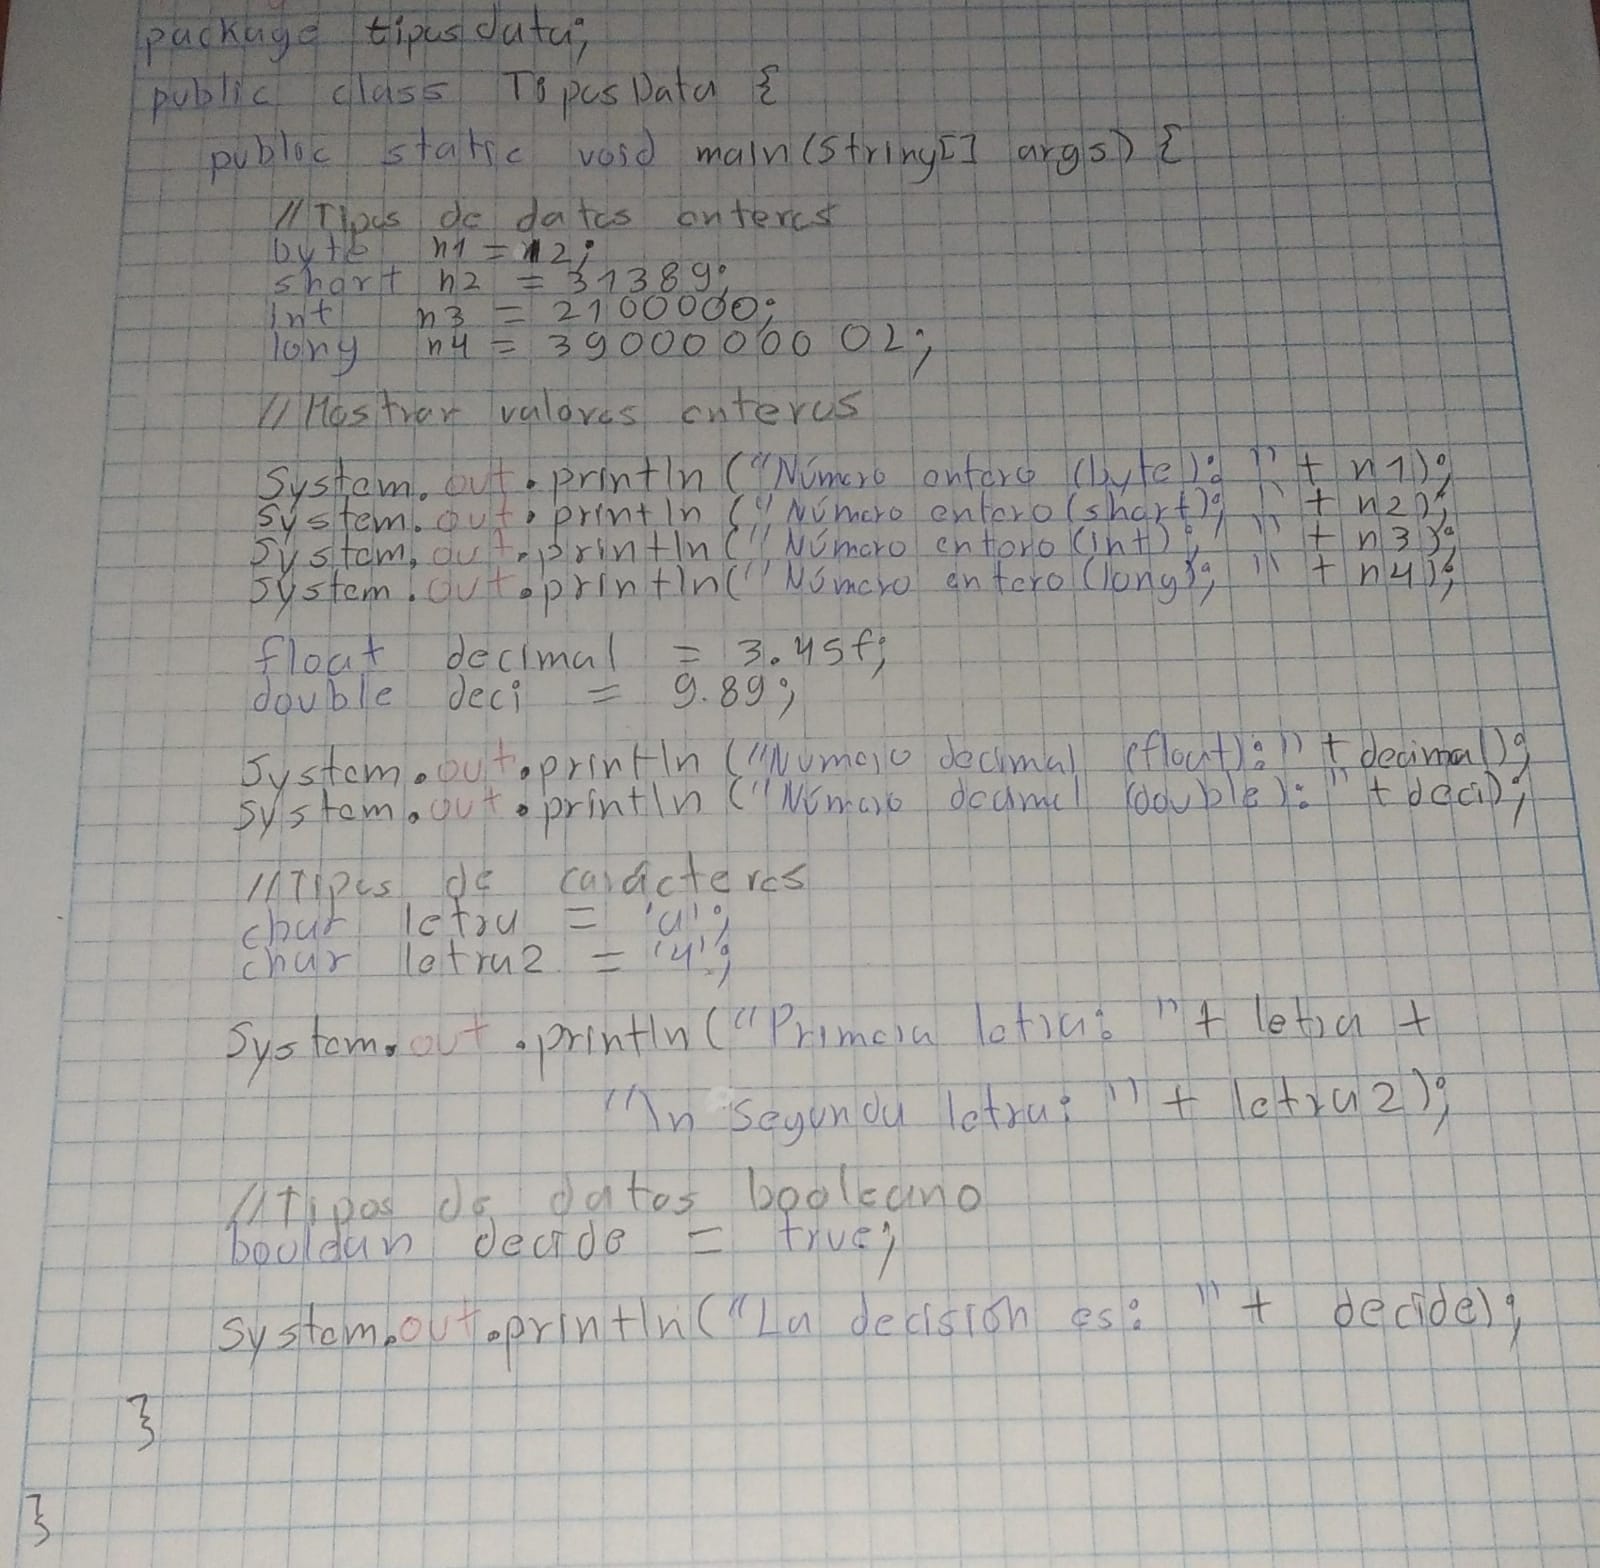 package tiposdata;
public class TiposData {
public static void main(String[] args) {
//Tipos de datos enteros
byte n1 = 12;
short n2 = 31389;
int n3 = 2100000;
long n4 = 3900000000L;
//Mostrar valores enteros
System.out.println("Número entero (byte): " + n1);
System.out.println("Número entero (short): " + n2);
System.out.println("Número entero (int): " + n3);
System.out.println("Número entero (long): " + n4);
float decimal = 3.45f;
double deci = 9.89;
System.out.println("Número decimal (float): " + decimal);
System.out.println("Número decimal (double): " + deci);
//Tipos de carácteres
char letra = 'a';
char letra2 = 'y';
System.out.println("Primera letra: " + letra +
"\n Segunda letra: " + letra2);
//Tipos de datos booleano
boolean decide = true;
System.out.println("La decisión es: " + decide);
}
}